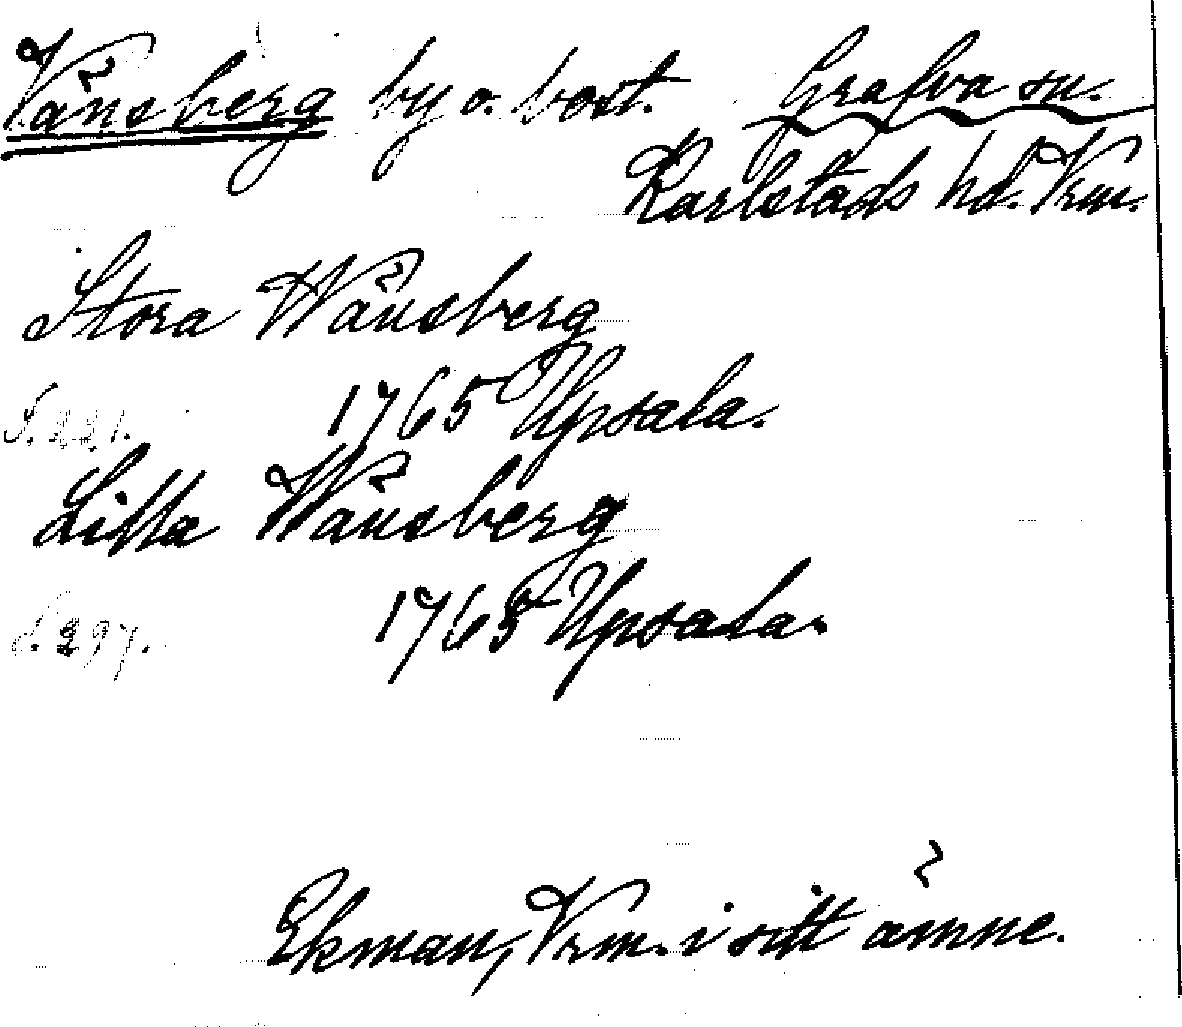 Vänsberg by o. bost. Grafva sn.
Karlstads hd. Vrm.
Stora Wänsberg
1765 Upsala.
S. 221.
Lilla Wänsberg
1765 Upsala.
S. 297.
Ekman, Vrm. i sitt ämne.